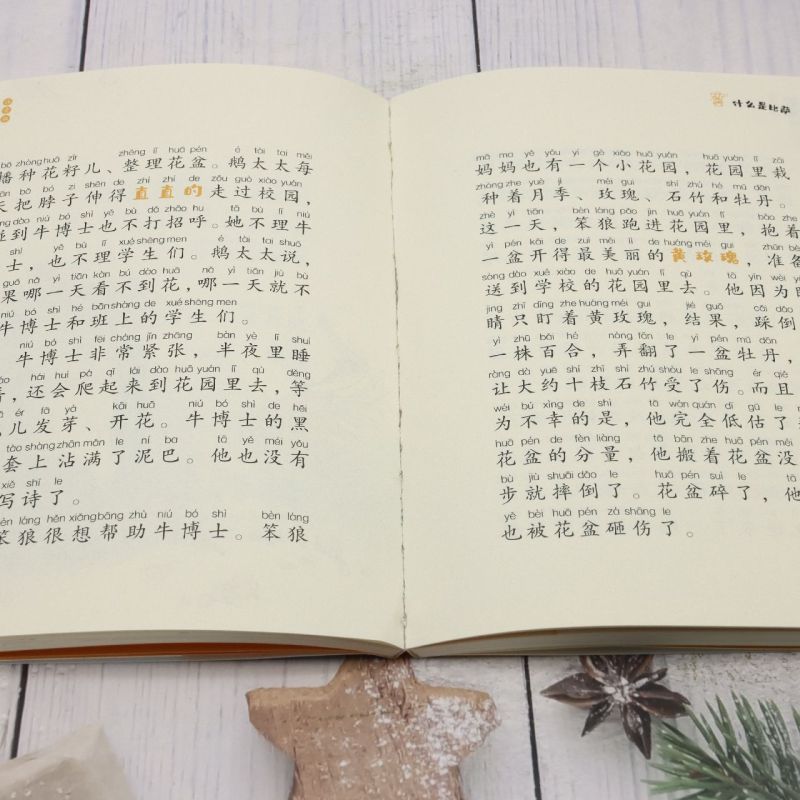 bō zhǒng huā zǐr zhěng lǐ huā pén é tài tai měi
播种花籽儿、整理花盆。鹅太太每
bǎ bó zi shēn de zhí zhí de zǒu guò xiào yuán
天把脖子伸得直直的走过校园，
dào niú bó shì yě bù dǎ zhāo hu tā bù lǐ niú
碰到牛博士也不打招呼。她不理牛
shì yě bù lǐ xué shēng men é tài tai shuō
士，也不理学生们。鹅太太说，
guǒ nǎ yì tiān kàn bú dào huā nǎ yì tiān jiù bù
果哪一天看不到花，哪一天就不
niú bó shì hé bān shàng de xué shēng men
牛博士和班上的学生们。
niú bó shì fēi cháng jǐn zhāng bàn yè lǐ shuì
牛博士非常紧张，半夜里睡
hái huì pá qǐ lái dào huā yuán lǐ qù děng
着，还会爬起来到花园里去，等
ér fā yá kāi huā niú bó shì de hēi
儿发芽、开花。牛博士的黑
tào shàng zhān mǎn le ní ba tā yě méi yǒu
套上沾满了泥巴。他也没有
xiě shī le
写诗了。
bèn láng hěn xiǎng bāng zhù niú bó shì bèn láng
笨狼很想帮助牛博士。笨狼
什么是比萨
mā ma yě yǒu yí gè xiǎo huā yuán huā yuán lǐ zāi
妈妈也有一个小花园，花园里栽
zhòng zhe yuè jì méi gui shí zhú hé mǔ dān
种着月季、玫瑰、石竹和牡丹。
zhè yì tiān bèn láng pǎo jìn huā yuán lǐ bào zhe
这一天，笨狼跑进花园里，抱着
yì pén kāi de zuì měi lì de huáng méi gui zhǔn bèi
一盆开得最美丽的黄玫瑰，准备
sòng dào xué xiào de huā yuán lǐ qù tā yīn wèi yǎn
送到学校的花园里去。他因为眼
jing zhǐ dīng zhe huáng méi gui jié guǒ cǎi dǎo
睛只盯着黄玫瑰，结果，踩倒
yì zhū bǎi hé nòng fān le yì pén mǔ dān
一株百合，弄翻了一盆牡丹，
ràng dà yuē shí zhī shí zhú shòu le shāng ér qiě
让大约十枝石竹受了伤。而且
wéi bú xìng de shì tā wán quán dī gū le
为不幸的是，他完全低估了
huā pén de fèn liàng tā bān zhe huā pén méi
花盆的分量，他搬着花盆没
bù jiù shuāi dǎo le huā pén suì le tā
步就摔倒了。花盆碎了，他
yě bèi huā pén zá shāng le
也被花盆砸伤了。